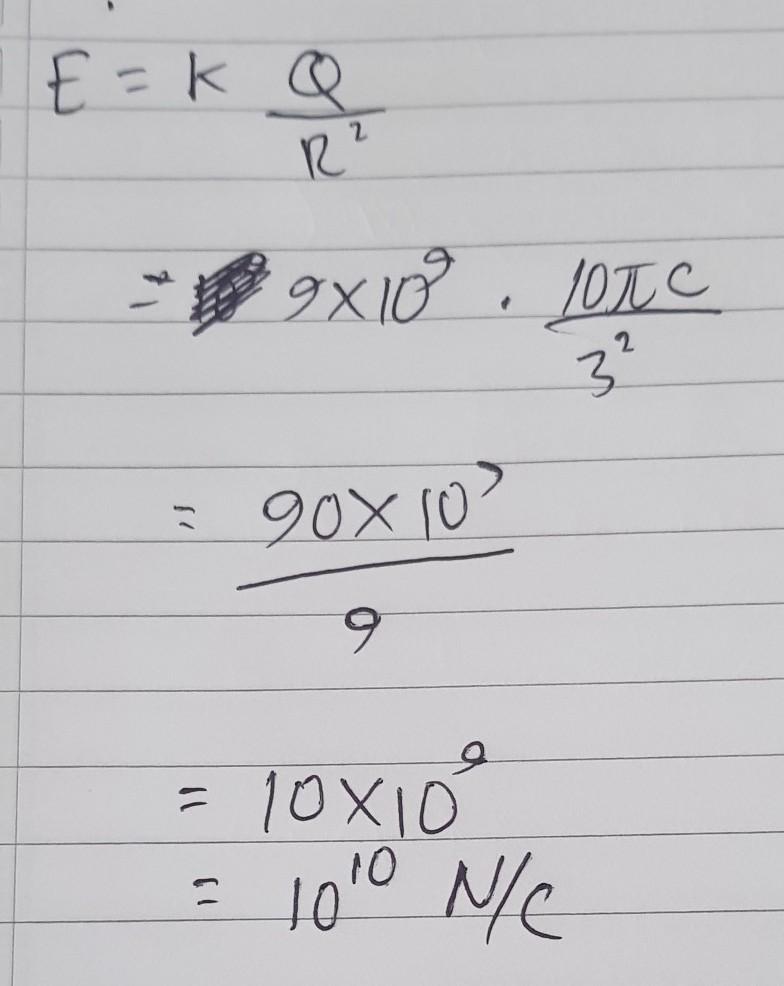 E = K Q/R²
= 9×10⁹ . 10πC/3²
= 90×10⁹/9
= 10×10⁹
= 10¹⁰ N/C